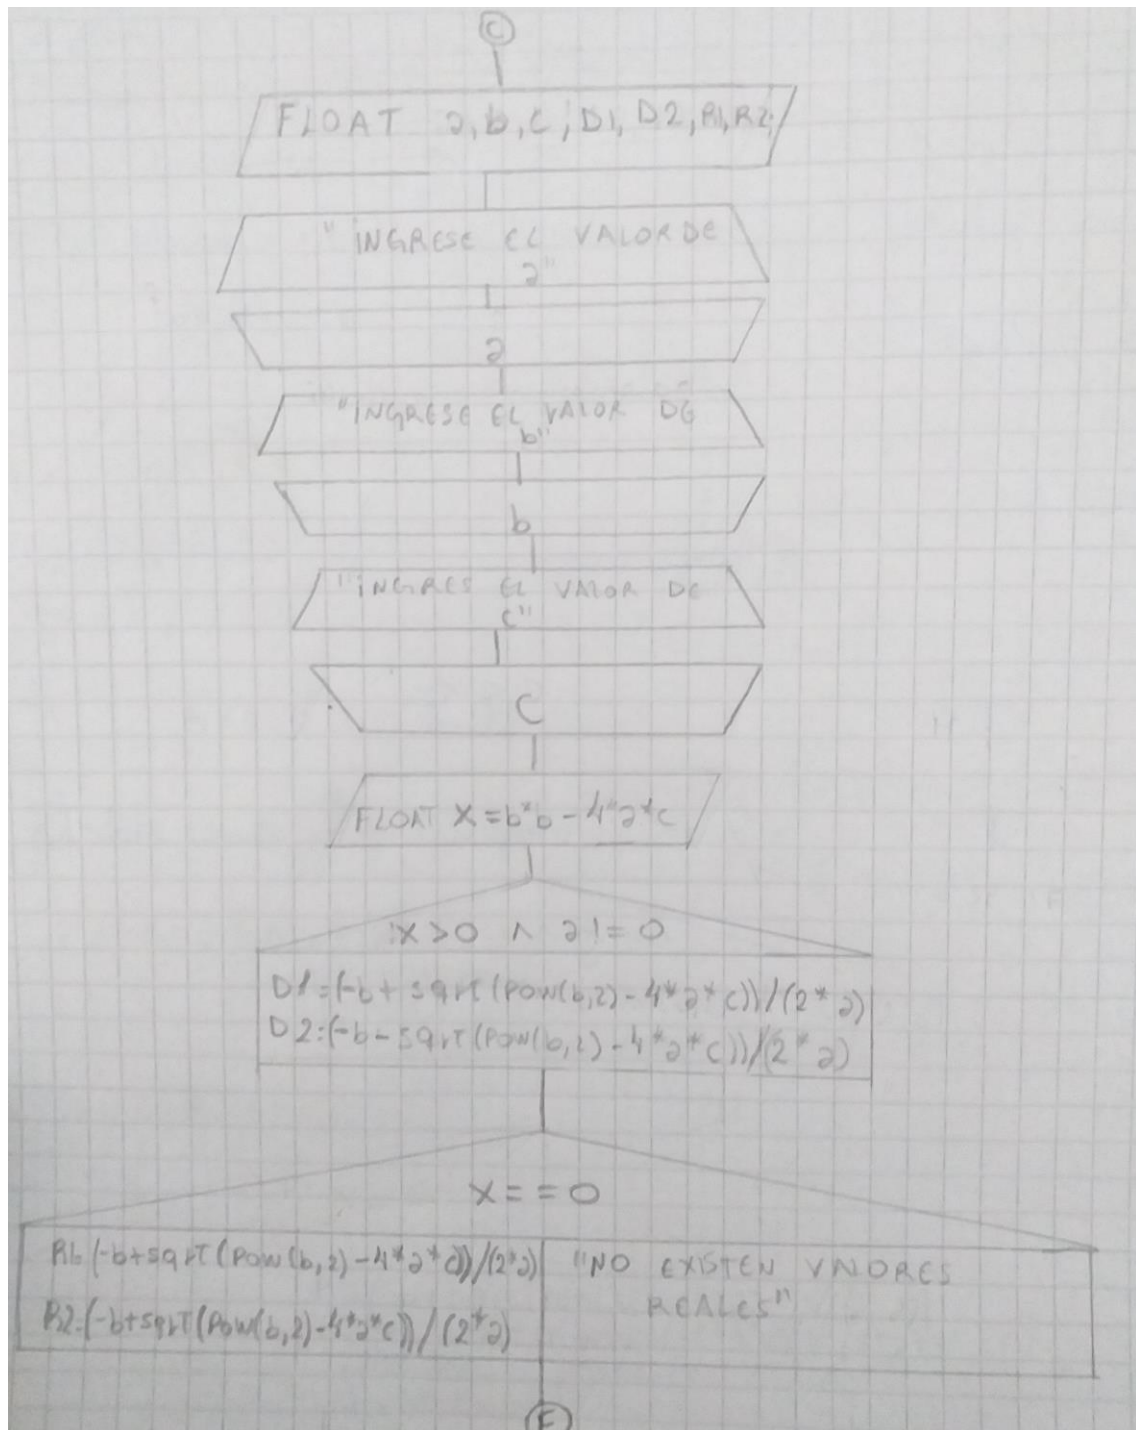 C
FLOAT a,b,c,D1,D2,R1,R2;
"INGRESE EL VALOR DE
a"
a
"INGRESE EL VALOR DE
b"
b
"INGRES EL VALOR DE
c"
C
FLOAT X=b*b-4*a*c
X>0 ∧ a!=0
D1=(-b+sqrt(pow(b,2)-4*a*c))/(2*a)
D2=(-b-sqrt(pow(b,2)-4*a*c))/(2*a)
X==0
R1=(-b+sqrt(pow(b,2)-4*a*c))/(2*a)
R2=(-b+sqrt(pow(b,2)-4*a*c))/(2*a)
"NO EXISTEN VALORES
REALES"
F